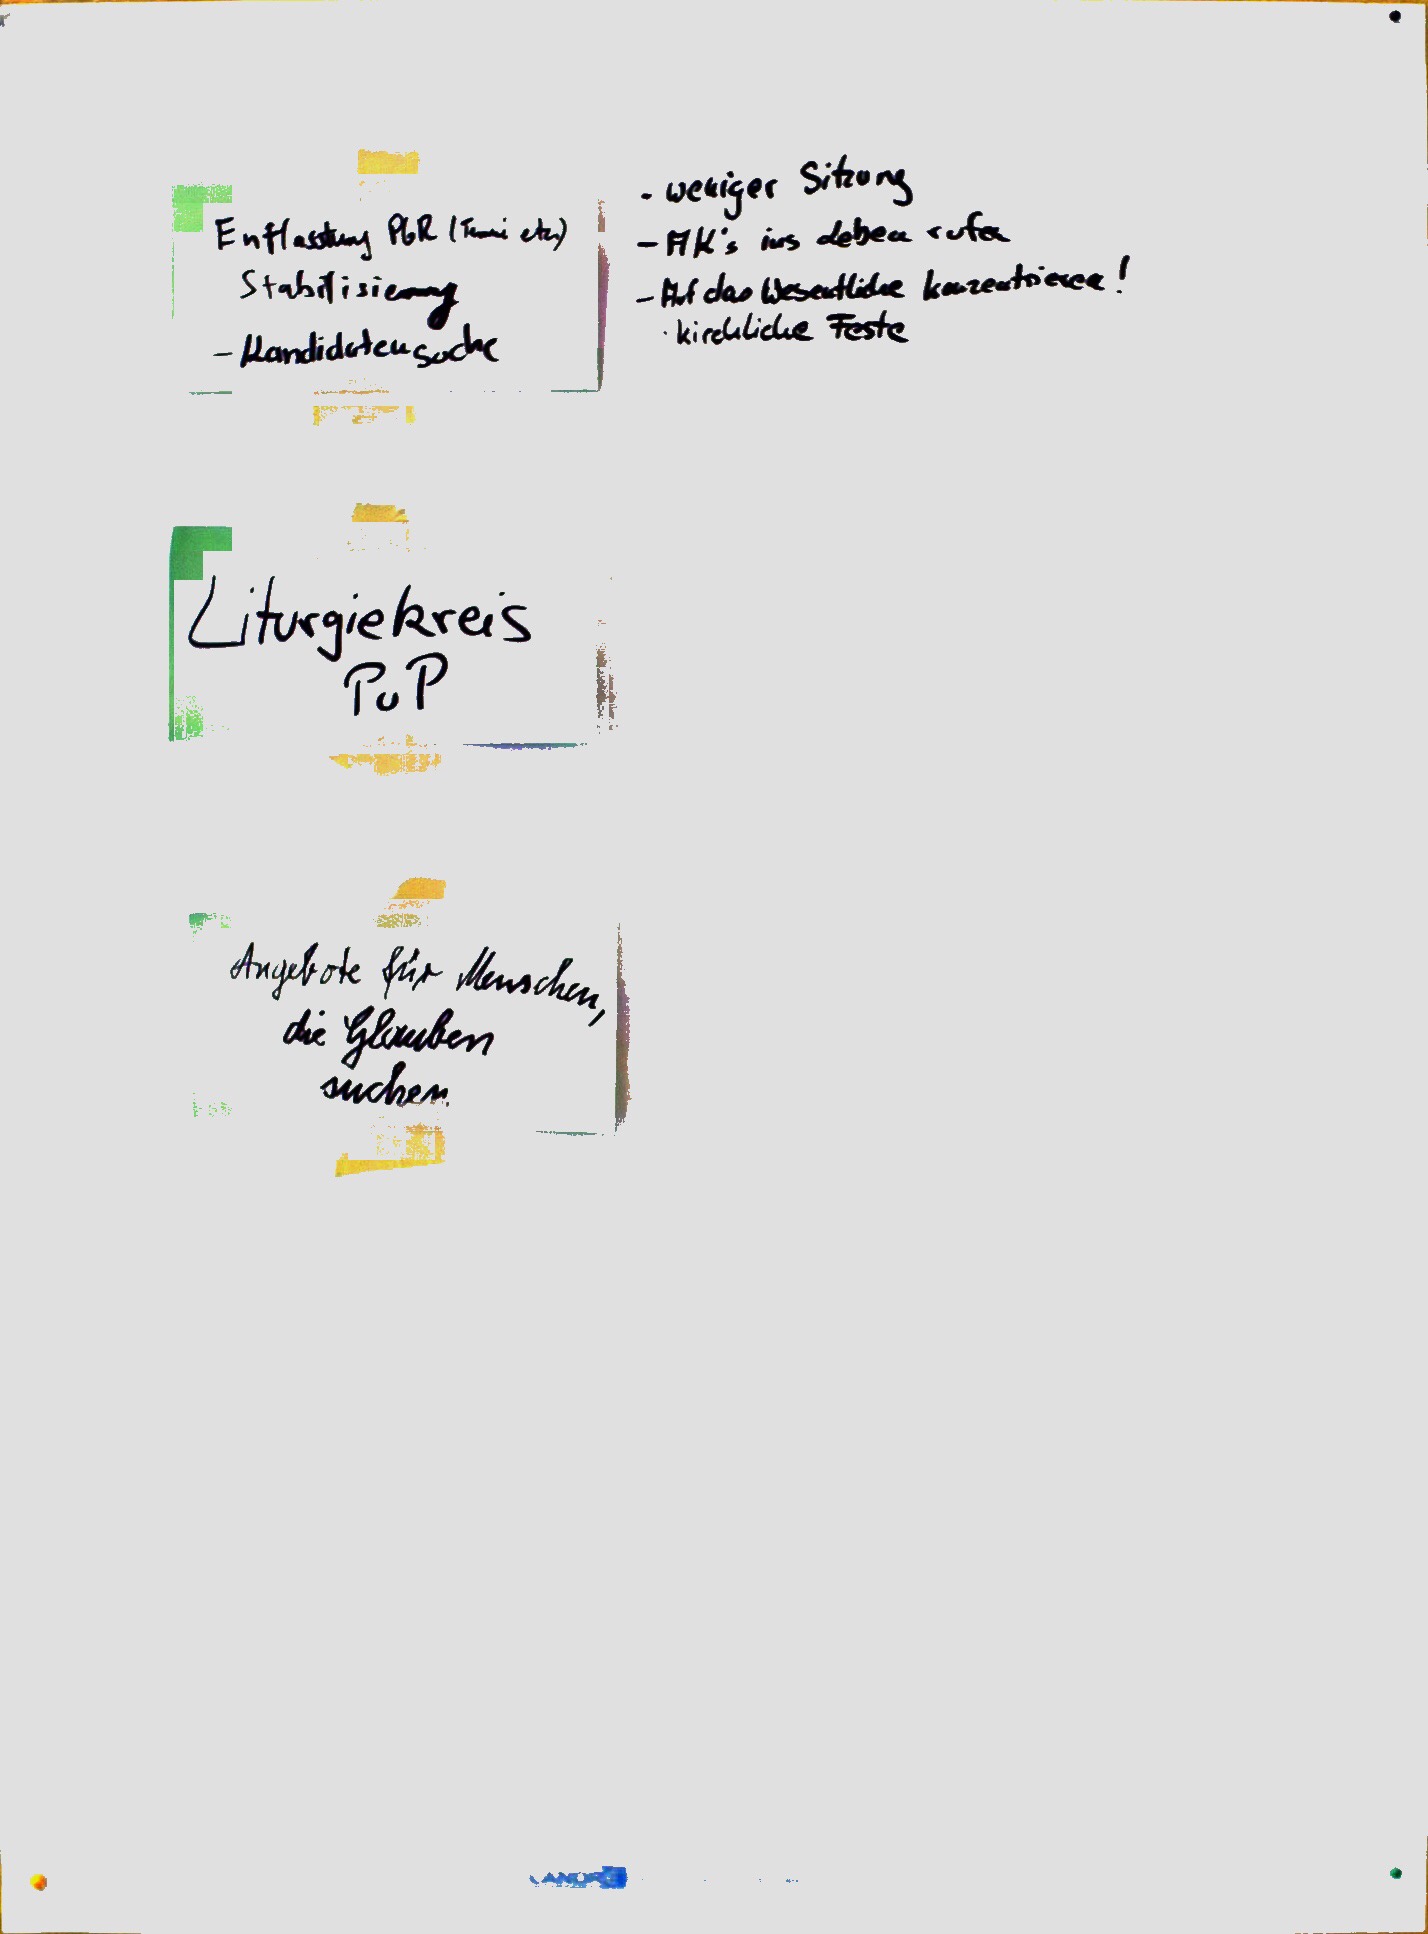 Entlasstung PGR (Termi etc.)
Stabilisierung
- Kandidatensuche
- weniger Sitzung
- AK's ins Leben rufen
- Auf das Wesentliche konzentrieren!
· kirchliche Feste
Liturgiekreis
PuP
Angebote für Menschen,
die Glauben
suchen.